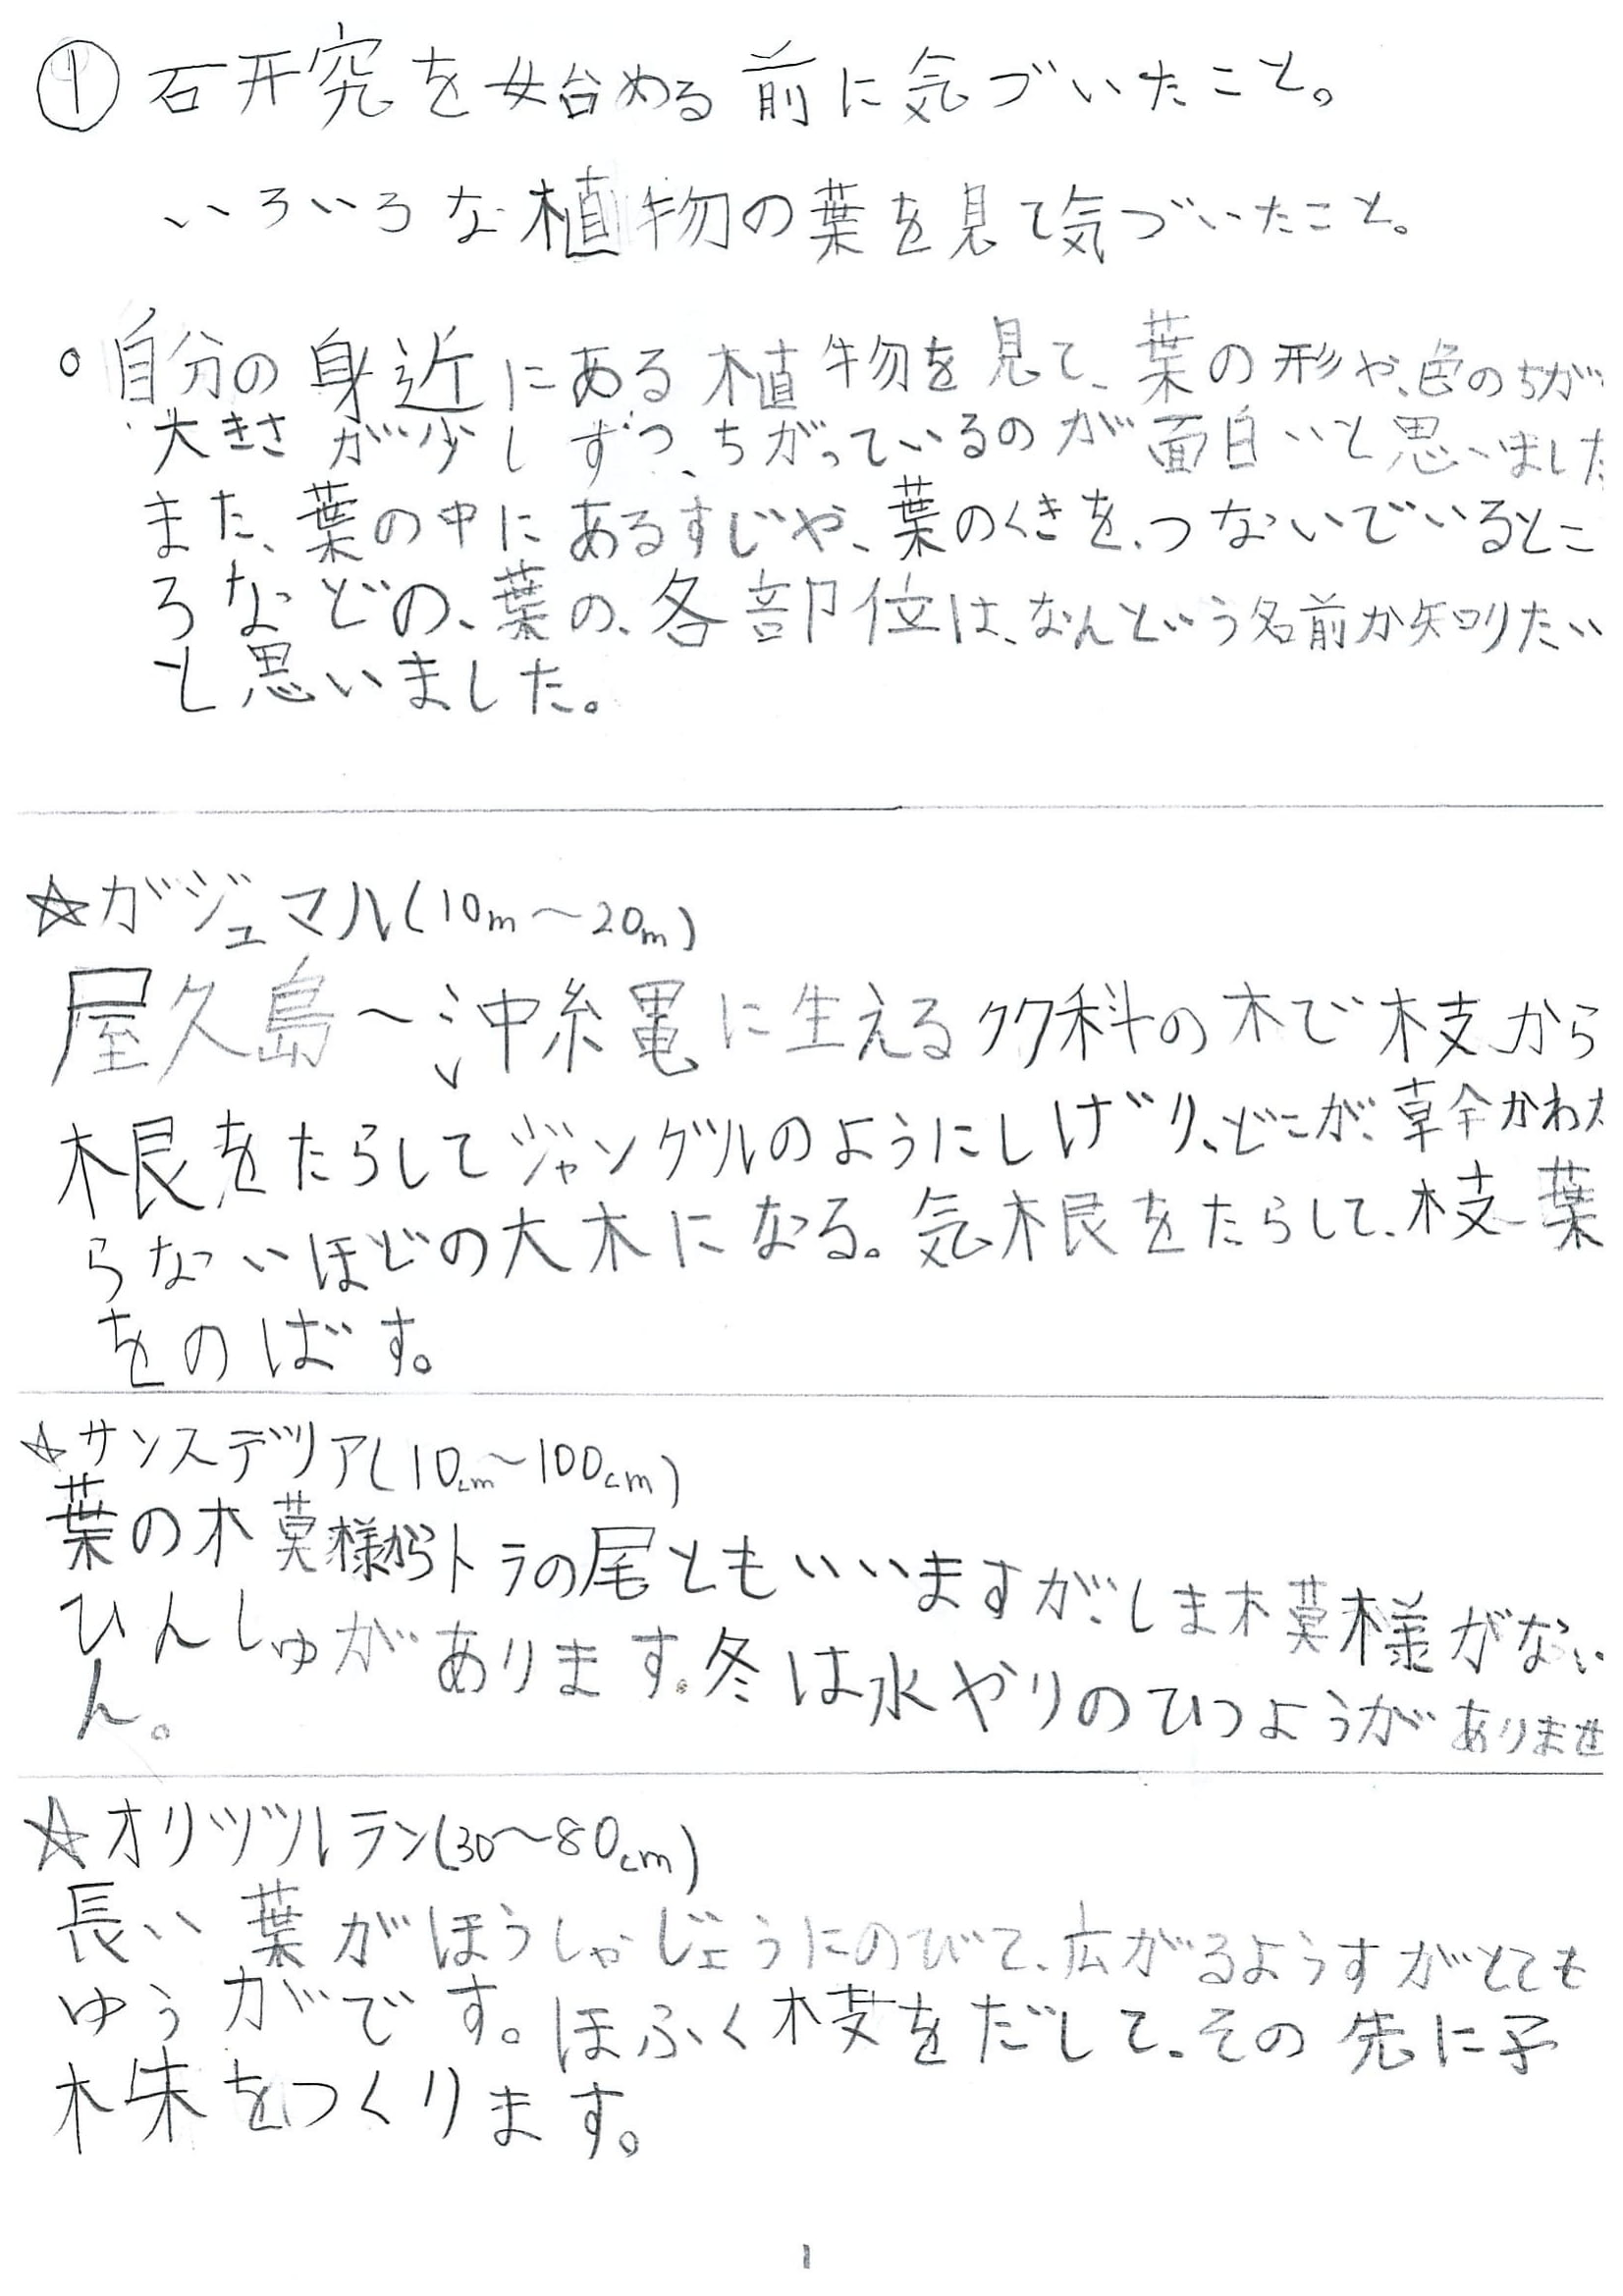 ① 研究を始める前に気づいたこと。
いろいろな植物の葉を見て気づいたこと。
○ 自分の身近にある植物を見て、葉の形や、色のちが
大きさが少しずつ、ちがっているのが面白いと思いました
また、葉の中にあるすじや、葉のくきを、つないでいるとこ
ろなどの、葉の、各部位は、なんという名前か知りたい
と思いました。
☆ガジュマル(10m〜20m)
屋久島〜沖縄に生えるクワ科の木で枝から
根をたらしてジャングルのようにしげり、どこが、草全かわか
らないほどの大木になる。気根をたらして、枝葉
をのばす。
☆サンスデリア(10cm〜100cm)
葉の模様からトラの尾ともいいますが、しま模様がない
ひんしゅがあります。冬は水やりのひつようがありませ
ん。
☆オリヅルラン(30〜80cm)
長い葉がほうしゃじょうにのびて、広がるようすがとても
ゆうがです。ほふく枝をだして、その先に子
株をつくります。
1